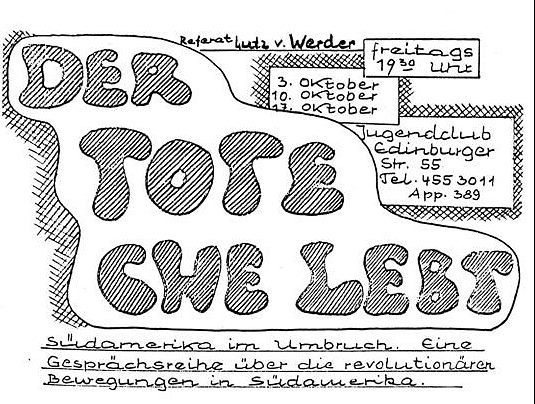 Referat Lutz v. Werder
freitags
19 30 Uhr
3. Oktober
10. Oktober
17. Oktober
Jugendclub
Edinburger
Str. 55
Tel. 455 3011
App. 389
DER
TOTE
CHE LEBT
Südamerika im Umbruch. Eine
Gesprächsreihe über die revolutionären
Bewegungen in Südamerika.